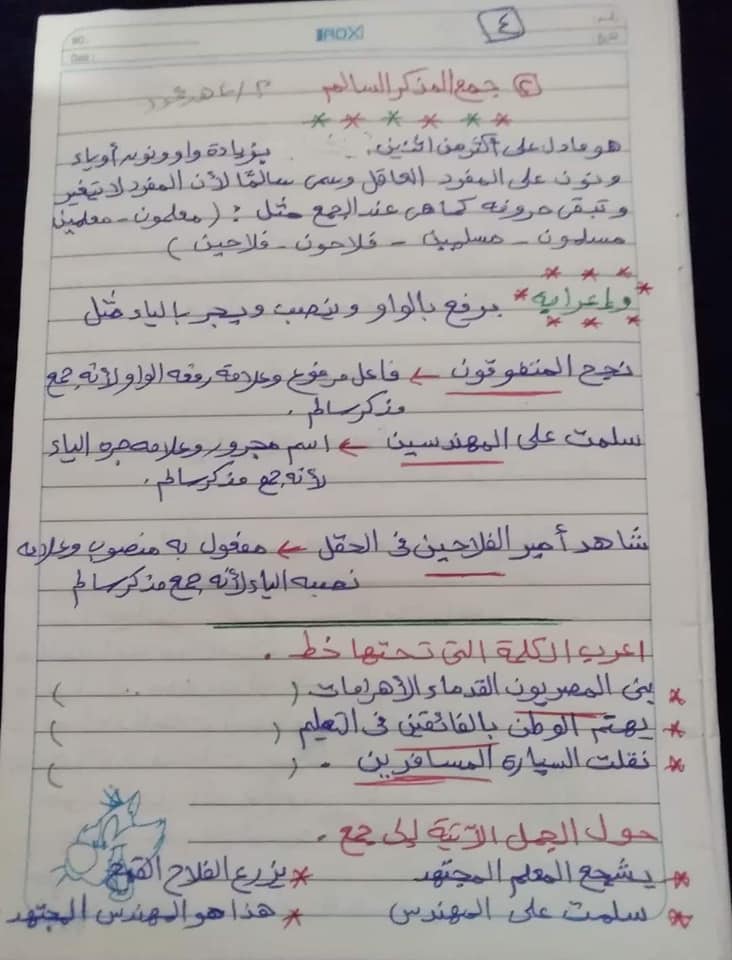 ٤
ROX
No:
Date:
٢ جمع المذكر السالم
هو ما دل على أكثر من اثنين. بزيادة واو ونون أو ياء
ونون على المفرد العاقل وسمى سالمًا لأن المفرد لا تتغير
وتبقى حروفه كما هى عند الجمع مثل : ( معلمون - معلمين
مسلمون - مسلمين - فلاحون - فلاحين )
وإعرابه * يرفع بالواو وينصب ويجر بالياء مثل
نجح المتفوقون ← فاعل مرفوع وعلامة رفعه الواو لأنه جمع
مذكر سالم .
سلمت على المهندسين ← اسم مجرور وعلامه جره الياء
لأنه جمع مذكر سالم .
شاهد أمير الفلاحين فى الحقل ← مفعول به منصوب وعلامه
نصبه الياء لأنه جمع مذكر سالم
اعرب الكلمة التى تحتها خط .
* بنى المصريون القدماء الأهرامات. ( )
* يهتم الوطن بالفائقين فى التعليم ( )
* نقلت السيارة المسافرين . ( )
حول الجمل الآتية إلى جمع .
* يشجع المعلم المجتهد * يزرع الفلاح القمح
* سلمت على المهندس * هذا هو المهندس المجتهد